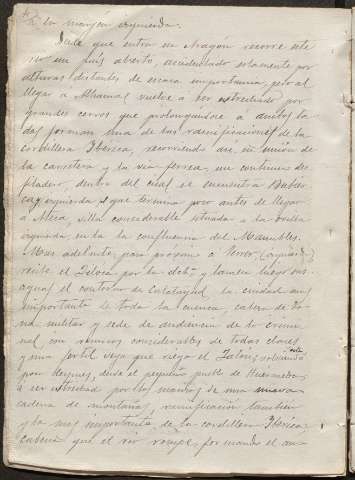 á la margen izquierda.
Desde que entra en Aragón recorre este
rio un país abierto, accidentado solamente por
alturas distantes de escasa importancia, pero al
llegar á Alhama vuelve á ser estrechado por
grandes cerros que prolongándose á ambos la-
dos forman una de las ramificaciones de la
cordillera Ibérica, recorriendo así en unión de
la carretera y la via-ferrea, un continuo des-
filadero, dentro del cual se encuentra Bubier-
ca, izquierda y que termina poco antes de llegar
á Ateca, villa considerable situada á la orilla
izquierda en la confluencia del Manubles.
Mas adelante, para próximo á Terrer, (izquierda)
recibe el Jiloca por la dcha y lamen luego sus
aguas el contorno de Calatayud, la ciudad mas
importante de toda la cuenca, cabeza de zo-
na militar y sede de audiencia de lo crimi-
nal con recursos considerables de todas clases
y una fertil vega que riega el Jalón, volviendo este
por después, desde el pequeño pueblo de Huérmeda
á ser estrechado por los montes de una nueva
cadena de montañas, ramificación tambien
y la mas importante de la cordillera Ibérica
cadena que el rio rompe formando el an-